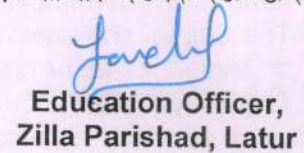 Education Officer,
Zilla Parishad, Latur